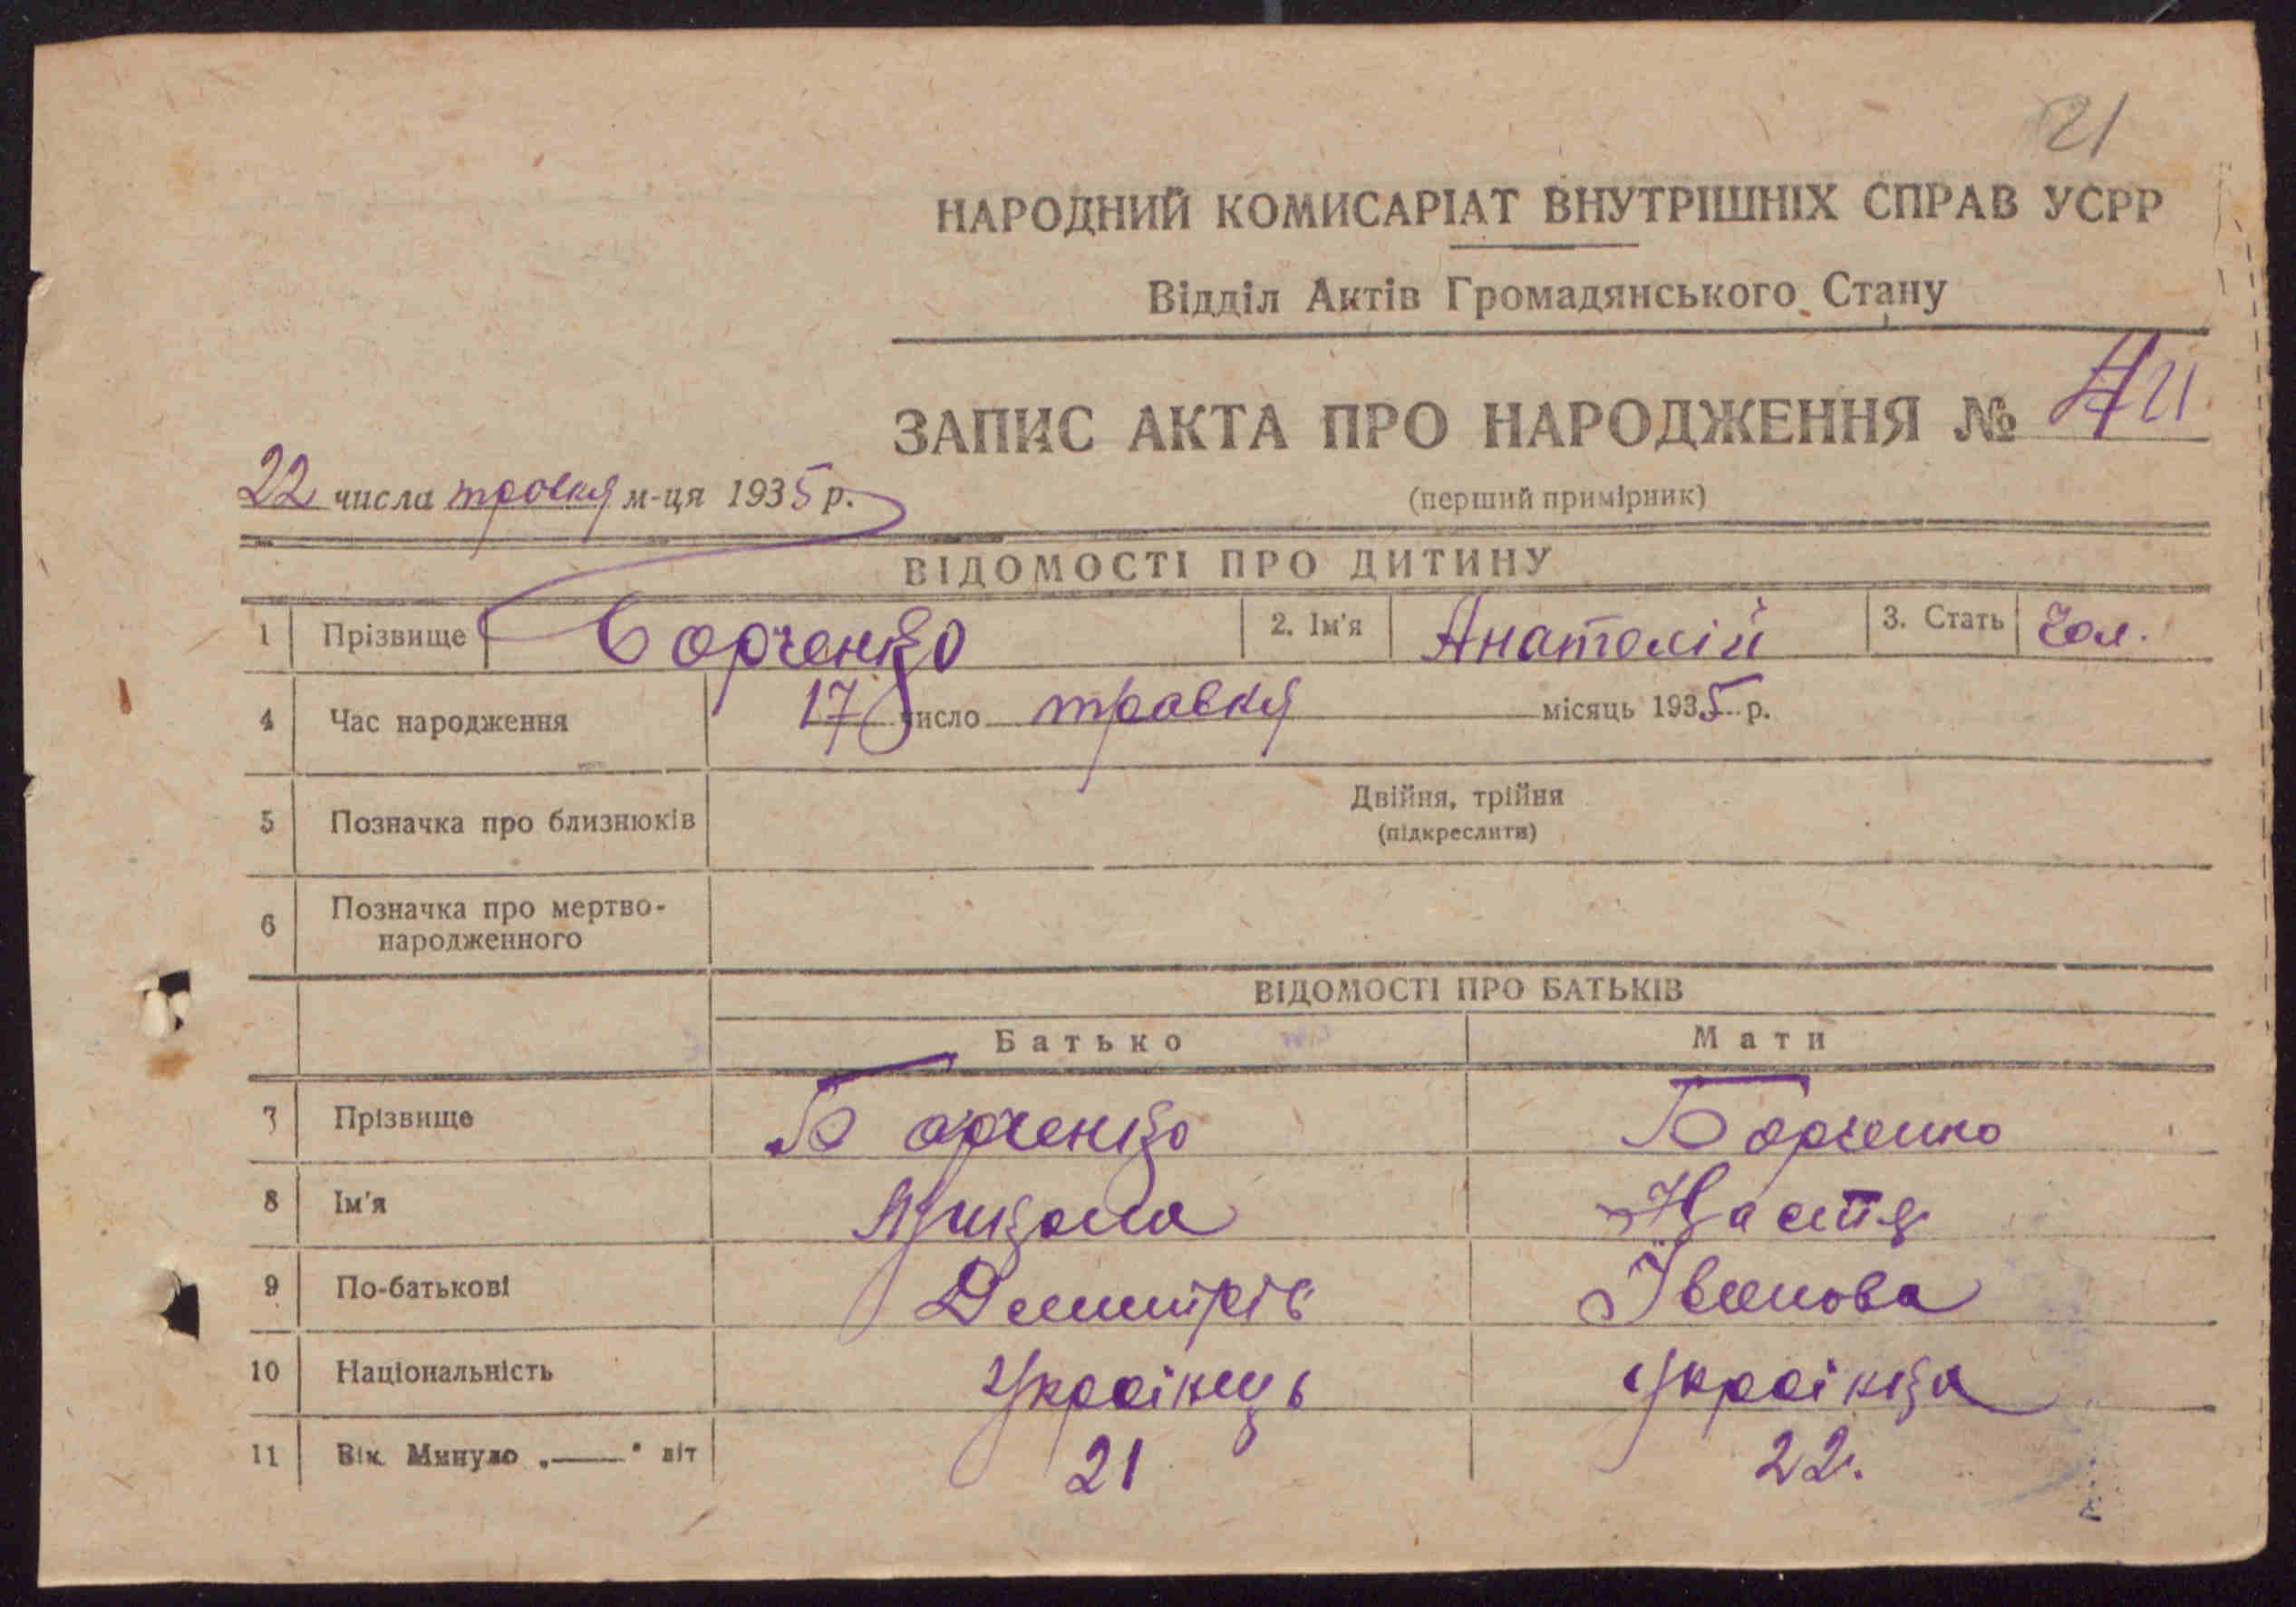 21
НАРОДНИЙ КОМИСАРІАТ ВНУТРІШНІХ СПРАВ УСРР
Відділ Актів Громадянського Стану
ЗАПИС АКТА ПРО НАРОДЖЕННЯ № 21
22 числа травня м-ця 1935 р.
(перший примірник)
ВІДОМОСТІ ПРО ДИТИНУ
1 Прізвище Борченко 2. Ім'я Анатолій 3. Стать Чол.
4 Час народження 17 число травня місяць 1935 р.
5 Позначка про близнюків Двійня, трійня
(підкреслити)
6 Позначка про мертво-
народженного
ВІДОМОСТІ ПРО БАТЬКІВ
Батько Мати
7 Прізвище Борченко Борченко
8 Ім'я Настя
9 По-батькові Дмитрів Іванова
10 Національність Українець Українка
11 Вік. Минуло „——" літ 21 22.